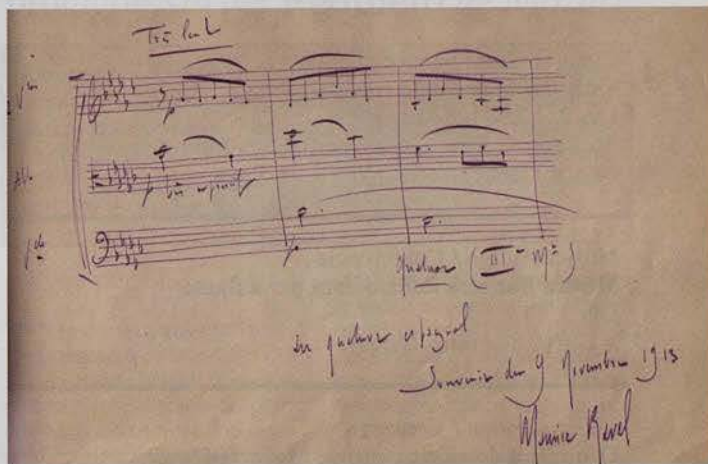 Très lent
p
p très expressif
p
Quatuor (III
au quatuor espagnol
Souvenir du 9 Novembre 1913
Maurice Ravel